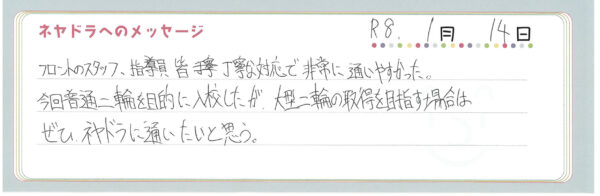 ネヤドラへのメッセージ R8. 1月 14日
フロントのスタッフ、指導員 皆 丁寧な対応で 非常に 通いやすかった。
今回普通二輪を目的に入校したが、大型二輪の取得を目指す場合は
ぜひ、ネヤドラに通いたいと思う。